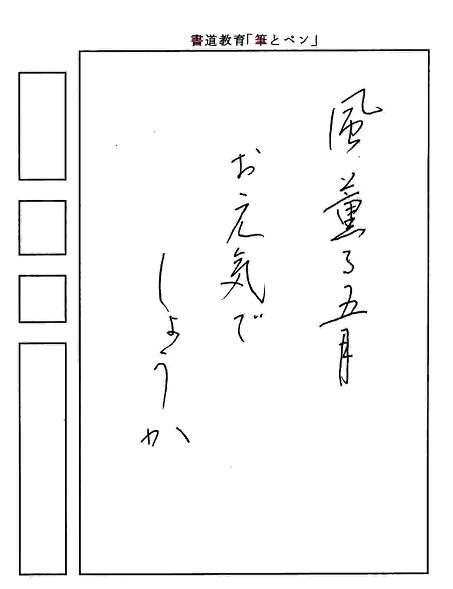 書道教育「筆とペン」
風薫る五月
お元気で
しょうか